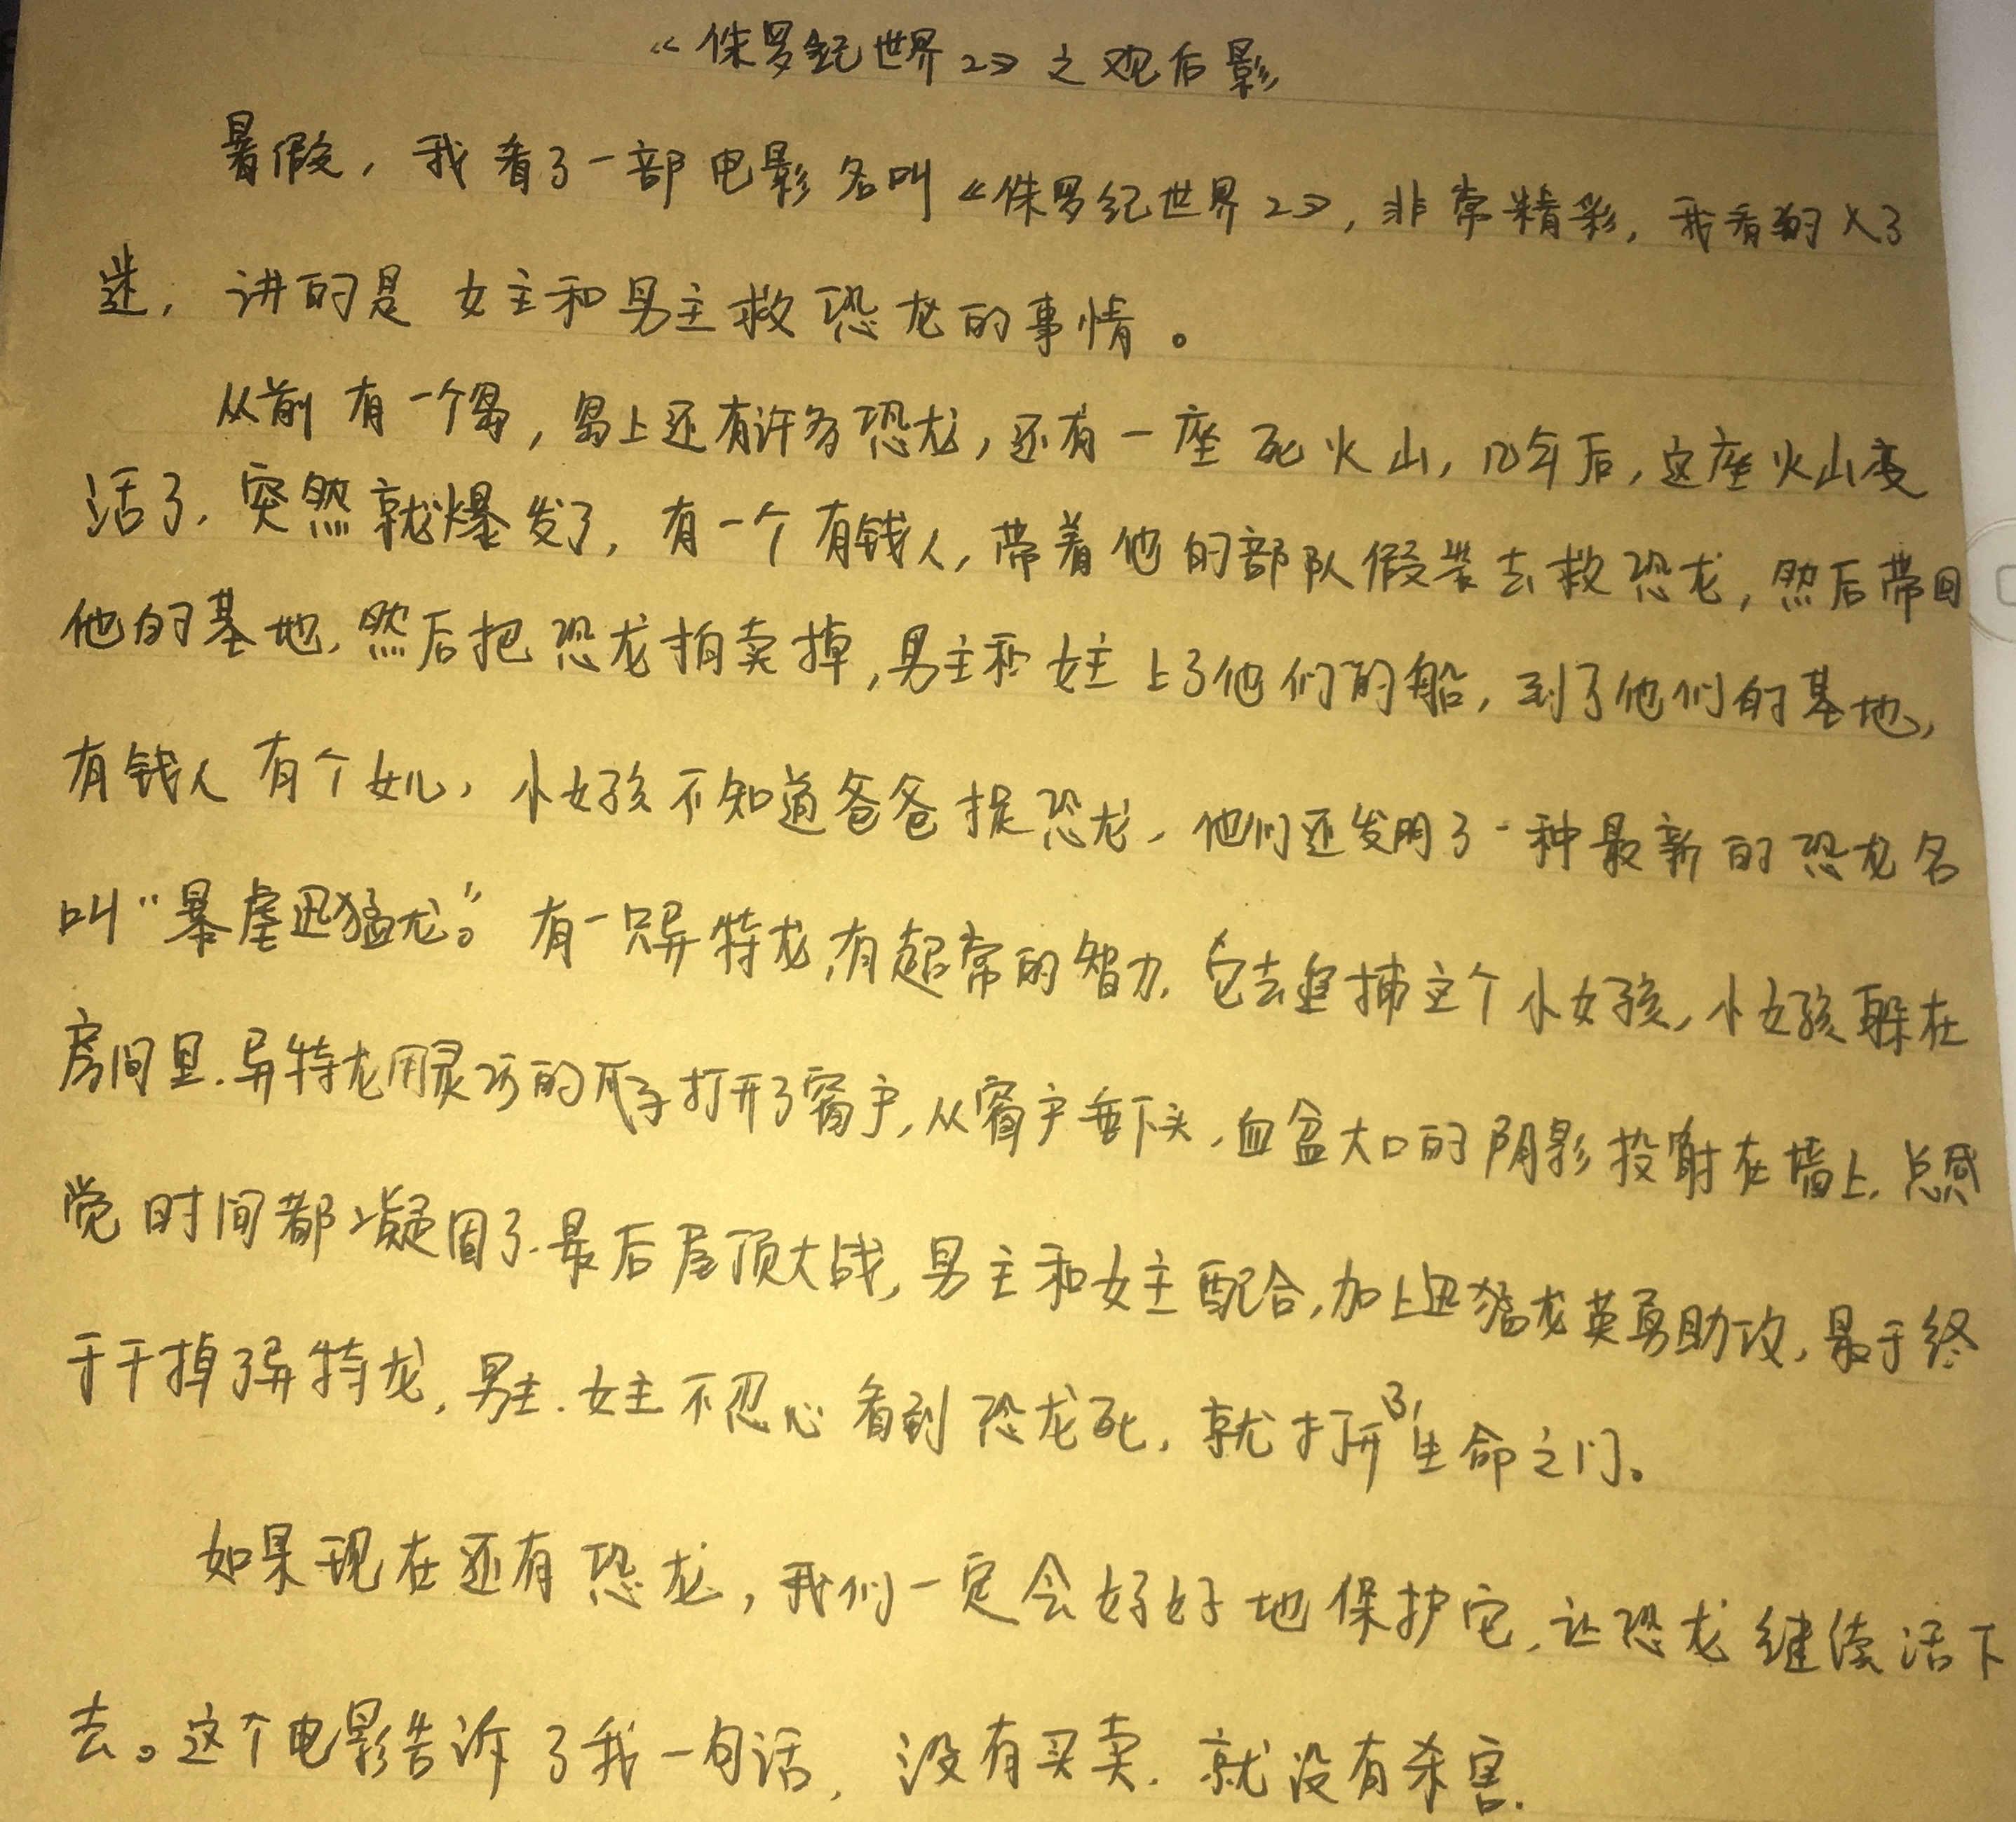 《侏罗纪世界2》之观后影
暑假，我看了一部电影名叫《侏罗纪世界2》，非常精彩，我看的入了
迷，讲的是女主和男主救恐龙的事情。
从前有一个岛，岛上还有许多恐龙，还有一座死火山，几年后，这座火山变
活了，突然就爆发了，有一个有钱人，带着他的部队假装去救恐龙，然后带回
他的基地，然后把恐龙拍卖掉，男主和女主上了他们的船，到了他们的基地，
有钱人有个女儿，小女孩不知道爸爸捉恐龙，他们还发明了一种最新的恐龙名
叫“暴虐迅猛龙。”有一只异特龙，有超常的智力，它去追捕这个小女孩，小女孩躲在
房间里，异特龙用灵巧的爪子打开了窗户，从窗户垂下头，血盆大口的阴影投射在墙上，总感
觉时间都凝固了，最后屋顶大战，男主和女主配合，加上迅猛龙英勇助攻，最于终
于干掉了异特龙，男主、女主不忍心看到恐龙死，就打开了生命之门。
如果现在还有恐龙，我们一定会好好地保护它，让恐龙继续活下
去。这个电影告诉了我一句话，没有买卖，就没有杀害.